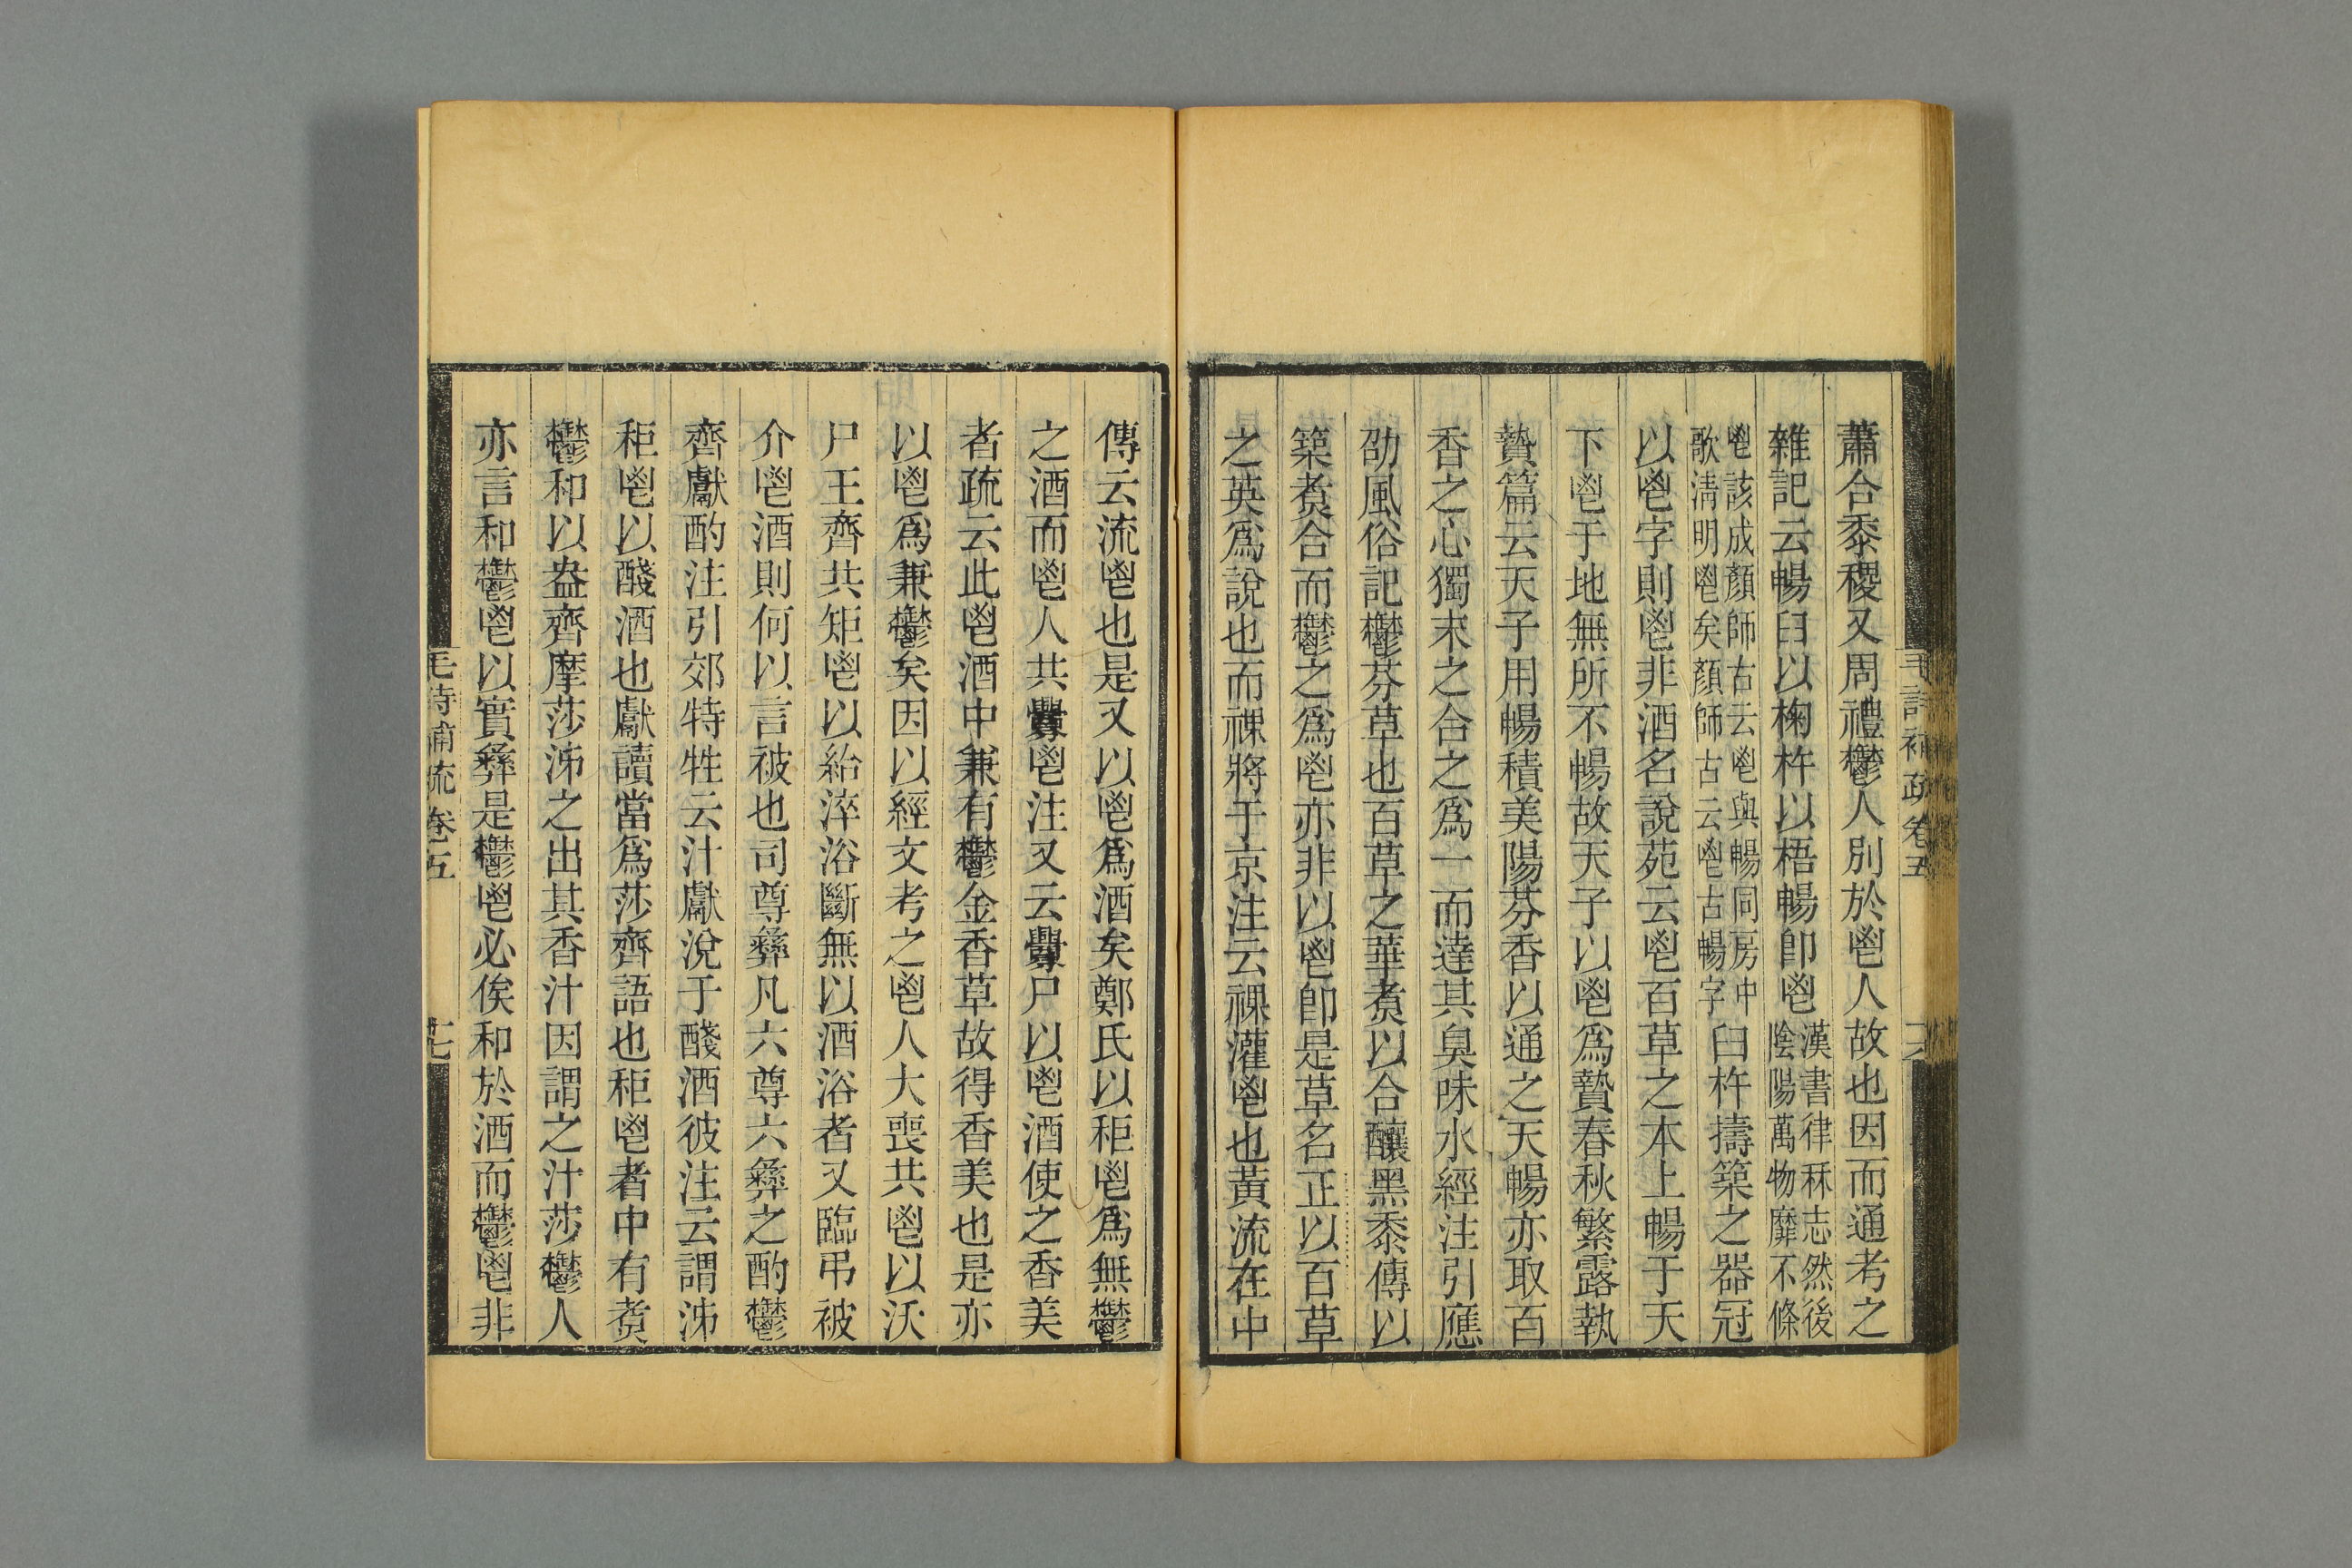 蕭合黍稷又周禮鬱人別於鬯人故也因而通考之
雜記云暢臼以椈杵以梧暢卽鬯漢書律秝志然後陰陽萬物靡不條
鬯該成顏師古云鬯與暢同房中歌淸明鬯矣顏師古云鬯古暢字臼杵擣築之器冠
以鬯字則鬯非酒名說苑云鬯百草之本上暢于天
下鬯于地無所不暢故天子以鬯爲贄春秋繁露執
贄篇云天子用暢積美陽芬香以通之天暢亦取百
香之心獨末之合之爲一而達其臭味水經注引應
劭風俗記鬱芬草也百草之華煑以合釀黑黍傳以
築煑合而鬱之爲鬯亦非以鬯卽是草名正以百草
之英爲說也而祼將于京注云祼灌鬯也黃流在中
毛詩補疏卷五
傳云流鬯也是又以鬯爲酒矣鄭氏以秬鬯爲無鬱
之酒而鬯人共釁鬯注又云釁尸以鬯酒使之香美
者疏云此鬯酒中兼有鬱金香草故得香美也是亦
以鬯爲兼鬱矣因以經文考之鬯人大喪共鬯以沃
尸王齊共矩鬯以給淬浴斷無以酒浴者又臨弔被
介鬯酒則何以言被也司尊彝凡六尊六彝之酌鬱
齊獻酌注引郊特牲云汁獻涗于醆酒彼注云謂泲
秬鬯以醆酒也獻讀當爲莎齊語也秬鬯者中有煑
鬱和以盎齊摩莎泲之出其香汁因謂之汁莎鬱人
亦言和鬱鬯以實彝是鬱鬯必俟和於酒而鬱鬯非
毛詩補疏卷五
七